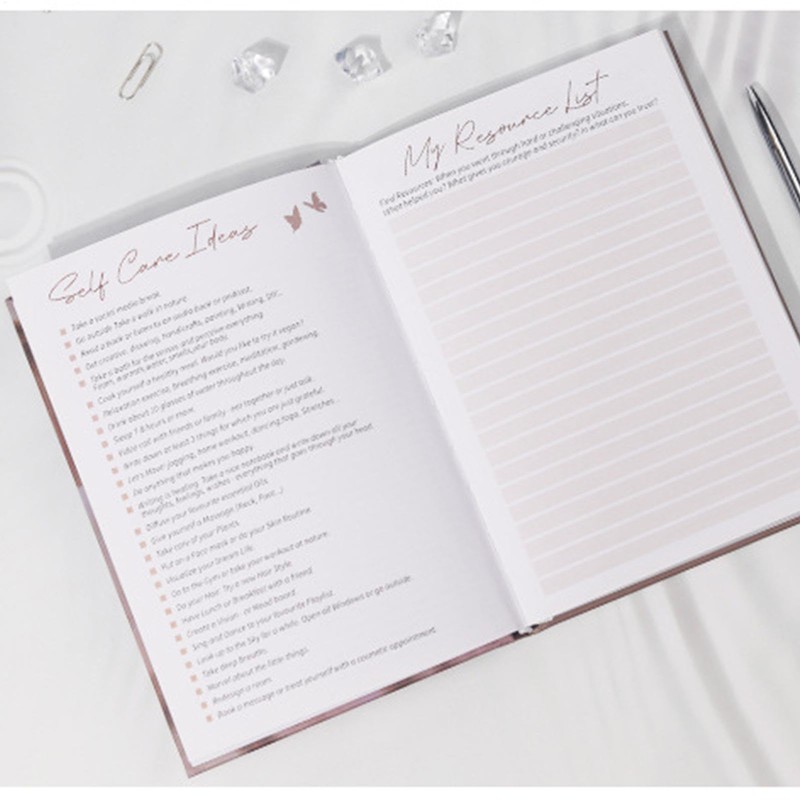 Self Care Ideas
Take a social media break.
Go outside. Take a walk in nature.
Read a book or listen to an audio book or podcast.
Get creative: drawing, handicrafts, painting, writing, etc..
Take a bath for the senses and perceive everything:
Foam, warmes water, smells your body.
Cook yourself a healthy meal. Would you like to try it vegan?
Relaxation exercise, Breathing exercise, meditation, gardening.
Drink about 10 glasses of water throughout the day.
Sleep 7-8 hours or more.
Video call with friends or family - eat together or just talk.
Write down at least 3 things for which you are just grateful.
Let's Move: Jogging, home workout, dancing Yoga, Stretches
Do anything that makes you happy.
Writing is healing. Take a nice notebook and write down all your
thoughts, feelings, wishes - everything that goes through your head.
Diffuse your favourite essential Oils.
Give yourself a Massage (Neck, Foot...)
Take care of your Plants.
Put on a Face mask or do your Skin Routine.
Visualize your Dream Life.
Go to the Gym or take your workout at nature.
Do your Hair. Try a new Hair Style.
Have Lunch or Breakfast with a friend.
Create a Vision - or Mood board.
Sing and Dance to your favourite Playlist.
Look up to the Sky for a while. Open all Windows or go outside.
Take deep Breaths.
Marvel about the little things.
Redesign a room.
Book a message or treat yourself with a cosmetic appointment.
My Resource List
Find Resources: When you went through hard or challenging situations,
What helped you? What gives you courage and security? In what can you trust?